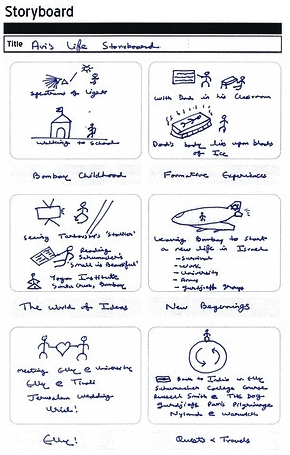 Storyboard
Title Avi's Life Storyboard
Spectrums of Light
Walking to School
Bombay Childhood
With Dad in his Classroom
Dad's body lies upon blocks
of Ice
Formative Experiences
Seeing Tarkovsky's 'Stalker'
Reading
Schumacher's
'Small is Beautiful'
Yoga Institute
Santa Cruz, Bombay
The World of Ideas
Leaving Bombay to start
a new life in Israel
- Survival
- Work
- University
- Army
- Gurdjieff groups
New Beginnings
Meeting Elly @ University
Elly @ Tivoli
Jerusalem Wedding
Elly!
Back to India w Elly
Schumacher College Course
Russell Smith @ The Dog
Gurdjieff Paris Pilgrimage
Nyland @ Warwick
Quests & Travels